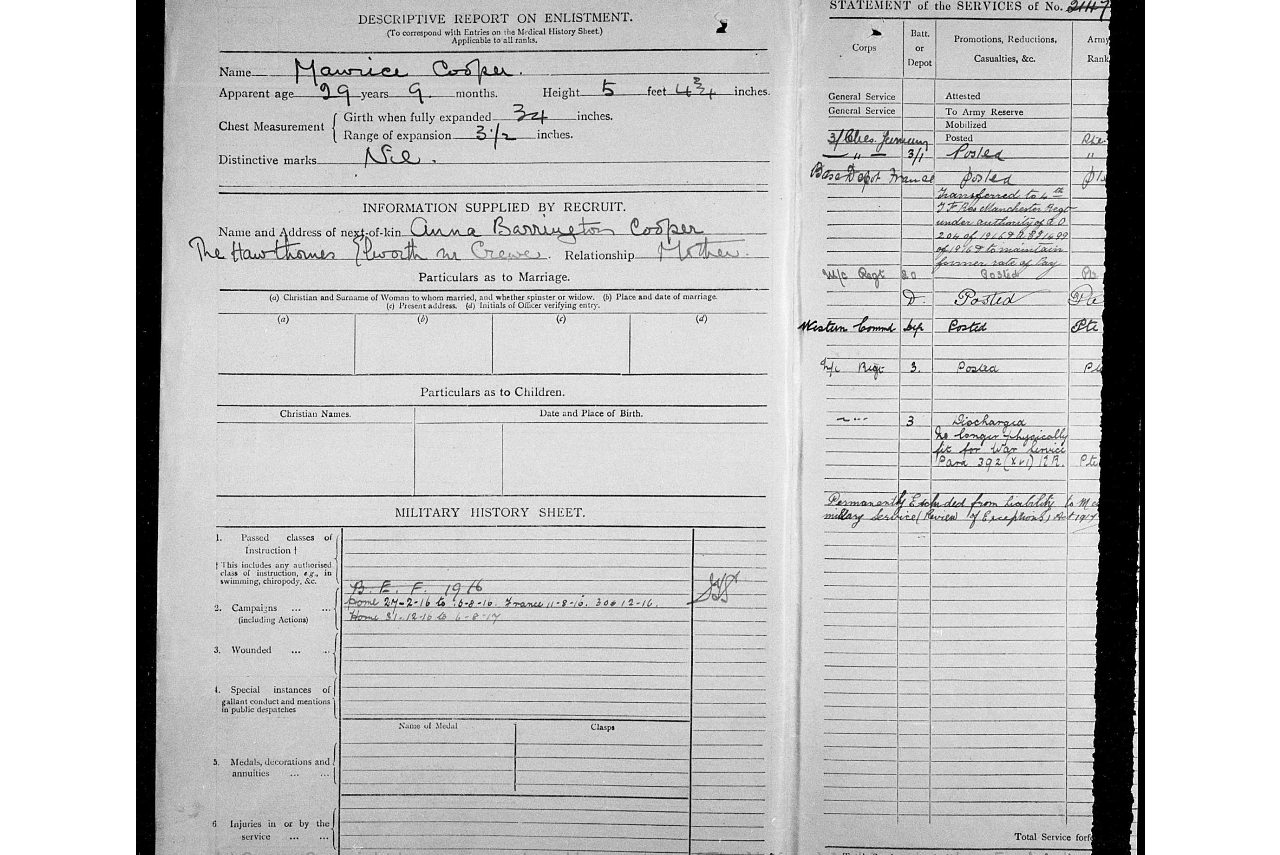 DESCRIPTIVE REPORT ON ENLISTMENT.
(To correspond with Entries on the Medical History Sheet.)
Applicable to all ranks.
Name Maurice Cooper.
Apparent age 29 years 9. months. Height 5 feet 4 3/4 inches.
Chest Measurement
Girth when fully expanded 34 inches.
Range of expansion 3 1/2 inches.
Distinctive marks Nil.
INFORMATION SUPPLIED BY RECRUIT.
Name and Address of next-of-kin Anna Barrington Cooper
The Hawthornes Elworth nr Crewe. Relationship Mother.
Particulars as to Marriage.
(a) Christian and Surname of Woman to whom married, and whether spinster or widow. (b) Place and date of marriage.
(c) Present address. (d) Initials of Officer verifying entry.
(a) (b) (c) (d)
Particulars as to Children.
Christian Names. Date and Place of Birth.
MILITARY HISTORY SHEET.
1. Passed classes of
Instruction †
† This includes any authorised
class of instruction, e.g., in
swimming, chiropody, &c.
B. E. F. 1916
2. Campaigns ... ...
(including Actions)
Home 27-2-16 to 10-8-16. France 11-8-16. 30-12-16.
Home 31-12-16 to 6-8-17
3. Wounded ... ...
4. Special instances of
gallant conduct and mentions
in public despatches
Name of Medal Clasps
5. Medals, decorations and
annuities ... ...
6 Injuries in or by the
service ... ...
STATEMENT of the SERVICES of No. 2147
Corps
Batt.
or
Depot
Promotions, Reductions,
Casualties, &c.
Army
Rank
General Service Attested
General Service To Army Reserve
Mobilized
3/Ches. Yeomanry Posted Pte
— " — 3/1 Posted "
Base Depot France posted
Transferred to 4th
T F Res Manchester Regt
under authority of A.O.
204 of 1916 & A.C.I 1499
of 1916 & to maintain
former rate of Pay
M/c Regt 20 Posted Pte
D. Posted Pte
Western Commd Dep Posted Pte
M/c Regt 3. Posted Pte
3 Discharged
No longer physically
fit for War Service
Para 392 (XVI) K.R. Pte
Permanently Excluded from liability to
military Service (Review of Exceptions) Act 1917
Total Service